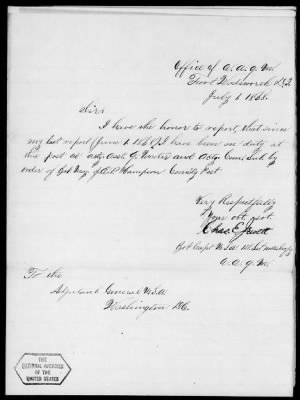 Office of A. A. Q. M.
Fort Wadsworth
July 1, 1868.
Sir:
I have the honor to report, that since
my last report (June 1, 1868) I have been on duty at
this post as Act. Asst. Q. Master and Actg. Com. Sub. by
order of Bvt Maj Hampson Comdg Post
Very Respectfully
Your obt. svt.
Chas. E.
Bvt Capt. U.S.A. 1st Lieut
A. A. Q. M.
To the
Adjutant General U.S.A.
Washington D.C.
THE
NATIONAL ARCHIVES
OF THE
UNITED STATES